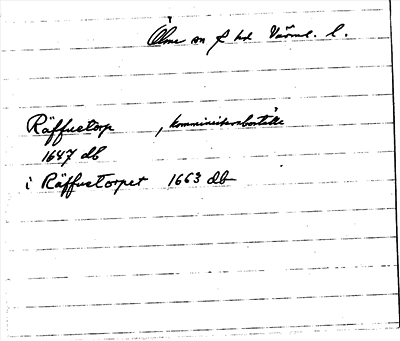 Ölme sn f hd Värml. l.
Räffuetorp, komministersboställe
1647 db
i Räffuetorpet 1663 db